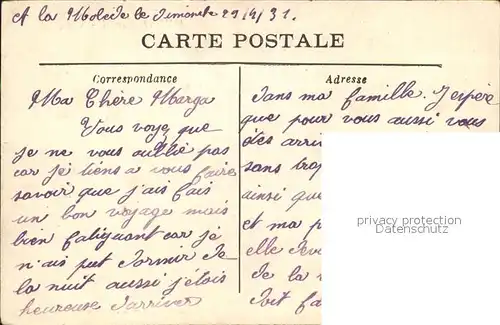 et la le dimanche 29/4/31.
CARTE POSTALE
Correspondance
Adresse
Ma Chère Marga
Vous voyez que
je ne vous oublié pas
car je tiens a vous faire
savoir que j'ais fais
un bon voyage mais
bien fatiguant car je
n'ais put dormir de
la nuit aussi j'etois
heureuse d'arriver
dans ma famille. J'espère
que pour vous aussi vous
êtes arri
sans trop
ainsi que
et ma p
elle
de la
doit fa
privacy protection
Datenschutz